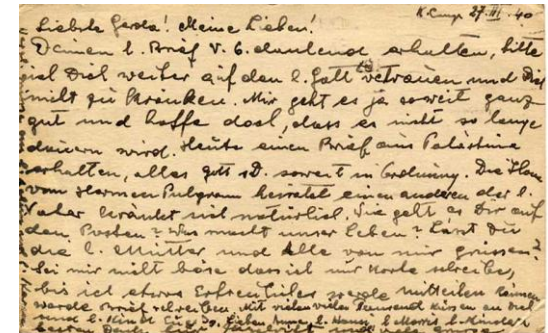 K. Camp 27.III.40
Liebste Gerda! Meine Lieben!
Deinen l. Brief v. 6. dankend erhalten, bitte
Dich weiter auf den l. Gott vertrauen und Dich
nicht zu kränken. Mir geht es ja soweit ganz
gut und hoffe doch, dass es nicht so lange
dauern wird. Heute einen Brief aus Palästina
erhalten, alles gott s.D. soweit in Ordnung. Die
von Hermen heiratet einen anderen der l.
Vater kränkt sich natürlich. Wie geht es Dir auf
den Posten? Was macht unser Leben? Lässt Du
die l. Mutter und Alle von mir grüssen?
Sei mir nicht böse dass ich nur Karte schreibe,
bis ich etwas Erfreuliches werde mitteilen können
werde Brief schreiben. Mit vielen vielen Tausend Küssen an Dich
und l. Kindl
besten